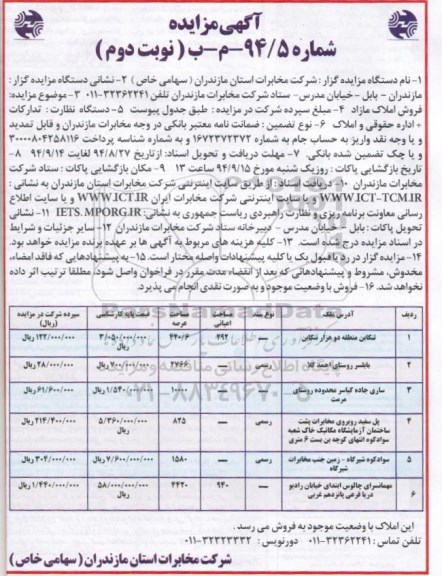 آگهی مزایده
شماره ۹۴/۵-م-ب ( نوبت دوم )
۱- نام دستگاه مزایده گزار : شرکت مخابرات استان مازندران ( سهامی خاص ) ۲- نشانی دستگاه مزایده گزار :
مازندران - بابل - خیابان مدرس- ستاد شرکت مخابرات مازندران تلفن ۳۲۳۶۲۲۴۱-۰۱۱ ۳- موضوع مزایده:
فروش املاک مازاد ۴- مبلغ سپرده شرکت در مزایده : طبق جدول پیوست ۵- دستگاه نظارت : تدارکات
+ اداره حقوقی و املاک ۶- نوع تضمین : ضمانت نامه معتبر بانکی در وجه مخابرات مازندران و قابل تمدید
و یا وجه نقد واریز به حساب جام ۱۶۷۲۳۷۲۳۷۲ و به شماره شناسه پرداخت ۳۰۰۰۰۸۰۴۲۵۸۱۱۶
و یا چک تضمین شده بانکی. ۷- مهلت دریافت و تحویل اسناد: از تاریخ ۹۴/۸/۲۷ لغایت ۹۴/۹/۱۴ ۸-
تاریخ بازگشایی پاکات : روز یک شنبه مورخ ۹۴/۹/۱۵ ساعت ۱۳ ۹- مکان بازگشایی پاکات : ستاد شرکت
مخابرات مازندران ۱۰- دریافت اسناد : از طریق سایت اینترنتی شرکت مخابرات استان مازندران به نشانی :
WWW.ICT-TCM.IR و سایت اینترنتی شرکت مخابرات ایران WWW.ICT.IR و یا سایت اطلاع
رسانی معاونت برنامه ریزی و نظارت راهبردی ریاست جمهوری به نشانی: IETS.MPORG.IR ۱۱- نشانی
تحویل پاکات : بابل - خیابان مدرس - دبیرخانه ستاد شرکت مخابرات مازندران ۱۲- سایر جزئیات و شرایط
در اسناد مزایده درج شده است. ۱۳- کلیه هزینه های مربوط به آگهی ها بر عهده برنده مزایده خواهد بود.
۱۴- مزایده گزار در رد یا قبول یک یا کلیه پیشنهادات واصله مختار است. ۱۵- به پیشنهادهایی که فاقد امضاء،
مخدوش، مشروط و پیشنهاداتی که بعد از انقضاء مدت مقرر در فراخوان واصل شود، مطلقا ترتیب اثر داده
نخواهد شد. ۱۶- فروش با وضعیت موجود و به صورت نقدی انجام می پذیرد.
ردیف آدرس ملک نوع سند مساحت اعیانی مساحت عرصه قیمت پایه کارشناسی (ریال) سپرده شرکت در مزایده (ریال)
۱ تنکابن منطقه دو هزار تنکابن — ۴۹۲ ۴۴۰/۶ ۳/۰۵۰/۰۰۰/۰۰۰ ریال ۱۲۲/۰۰۰/۰۰۰ ریال
۲ بابلسر روستای احمد کلا رسمی — ۲۷۶۶ ۷۰۰/۰۰۰/۰۰۰ ریال ۲۸/۰۰۰/۰۰۰ ریال
۳ ساری جاده کیاسر محدوده روستای مرمت — — ۱۰۰۰۰ ۱/۵۴۰/۰۰۰/۰۰۰ ریال ۶۱/۶۰۰/۰۰۰ ریال
۴ پل سفید روبروی مخابرات پشت ساختمان آزمایشگاه مکانیک خاک شعبه سوادکوه انتهای کوچه بن بست ۶ متری رسمی — ۸۲۵ ۵/۳۶۰/۰۰۰/۰۰۰ ریال ۲۱۴/۴۰۰/۰۰۰ ریال
۵ سوادکوه شیرگاه - زمین جنب مخابرات شیرگاه رسمی — ۱۵۸۰ ۷/۶۰۰/۰۰۰/۰۰۰ ریال ۳۰۴/۰۰۰/۰۰۰ ریال
۶ مهمانسرای چالوس ابتدای خیابان رادیو دریا فرعی پانزدهم غربی ۹۴۰ ۴۴۲۰ ۵۸/۰۰۰/۰۰۰/۰۰۰ ریال ۱/۴۴۰/۰۰۰/۰۰۰ ریال
این املاک با وضعیت موجود به فروش می رسد .
شماره تماس: ۳۲۳۶۲۲۴۱-۰۱۱ دورنویس : ۳۲۳۲۳۳۳۲-۰۱۱
شرکت مخابرات استان مازندران ( سهامی خاص )